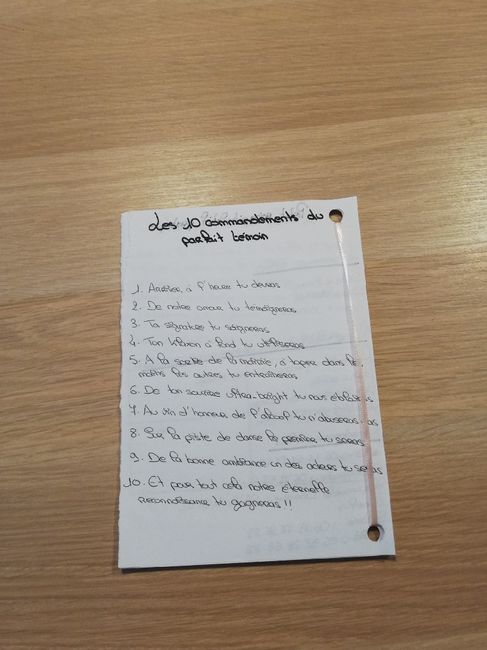 Les 10 commandements du
parfait témoin
1. Arriver à l'heure tu devras
2. De notre amour tu témoigneras
3. Ta signature tu soigneras
4. Ton klaxon à fond tu utiliseras
5. A la sortie de la mairie, à taper dans les
mains les autres tu entraîneras
6. De ton sourire ultra-bright tu nous éblouiras
7. Au vin d'honneur de l'alcool tu n'abuseras pas
8. Sur la piste de danse la première tu seras
9. De la bonne ambiance un des acteurs tu seras
10. Et pour tout cela notre éternelle
reconnaissance tu gagneras !!